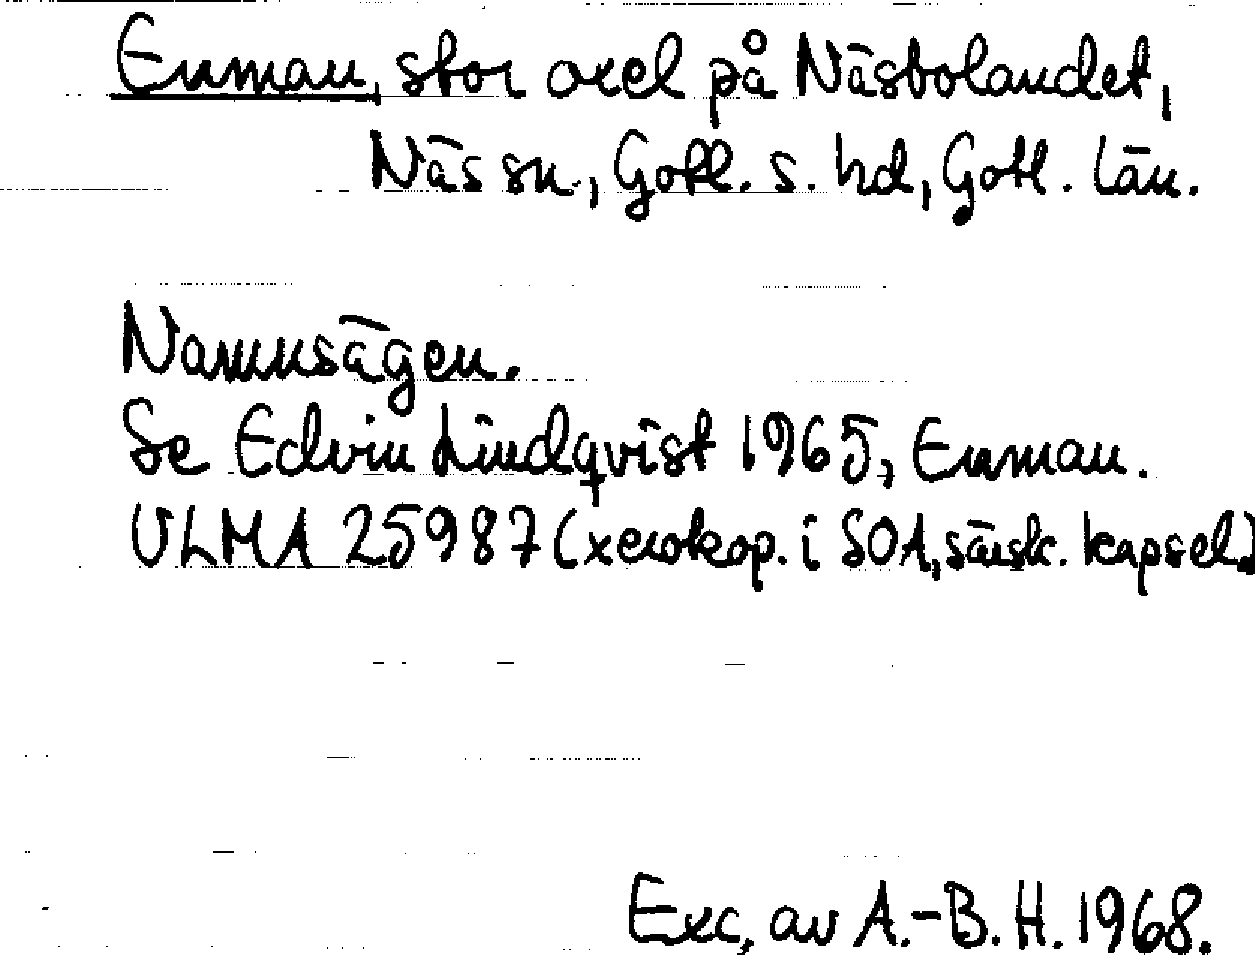 Enman, stor oxel på Näsbolandet,
Näs sn., Gotl. s. hd, Gotl. län.
Namnsägen.
Se Edvin Lindqvist 1965, Enman.
ULMA 25987 (xerokop. i SOA, särsk. kapsel)
Exc, av A.-B. H. 1968.